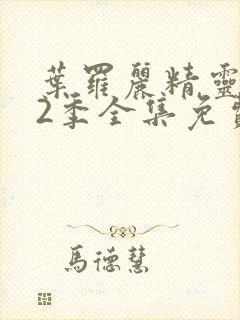 葉羅麗精靈
2季全集免費
馬德慧